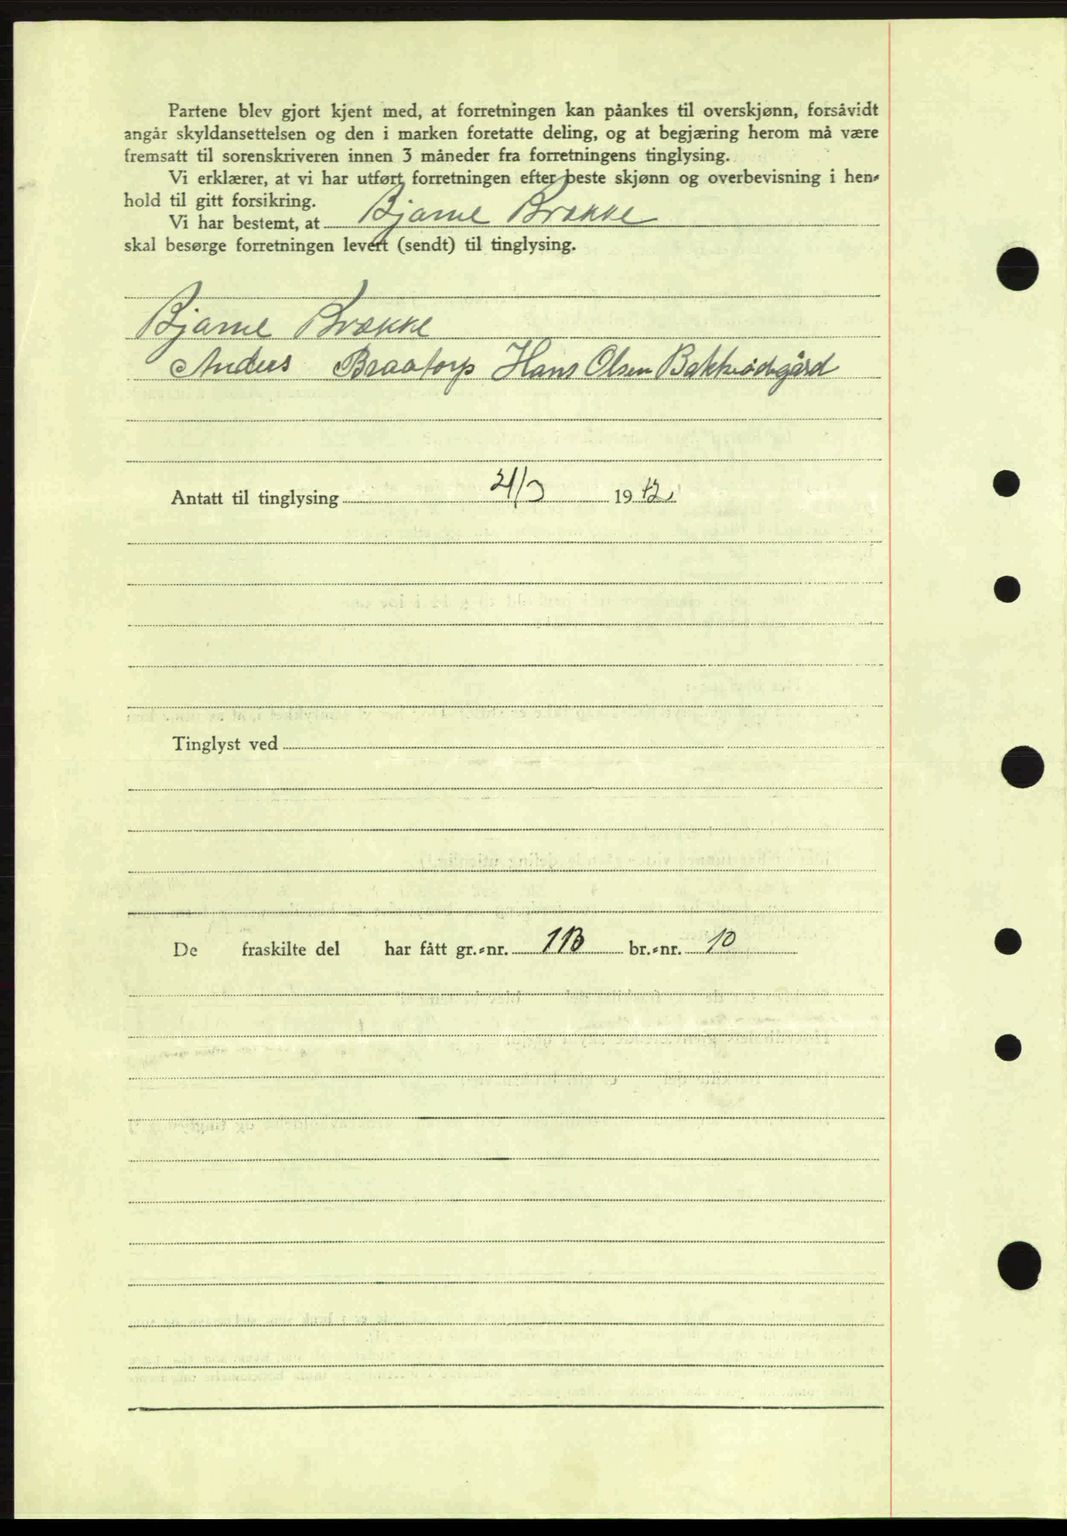 Partene blev gjort kjent med, at forretningen kan påankes til overskjønn, forsåvidt
angår skyldansettelsen og den i marken foretatte deling, og at begjæring herom må være
fremsatt til sorenskriveren innen 3 måneder fra forretningens tinglysing.
Vi erklærer, at vi har utført forretningen efter beste skjønn og overbevisning i hen-
hold til gitt forsikring.
Vi har bestemt, at Bjarne Brække
skal besørge forretningen levert (sendt) til tinglysing.
Bjarne Brække
Anders Braatorp Hans Olsen Bakkeødegård
Antatt til tinglysing 21/3 1942.
Tinglyst ved
De fraskilte del har fått gr.-nr. 113 br.-nr. 10